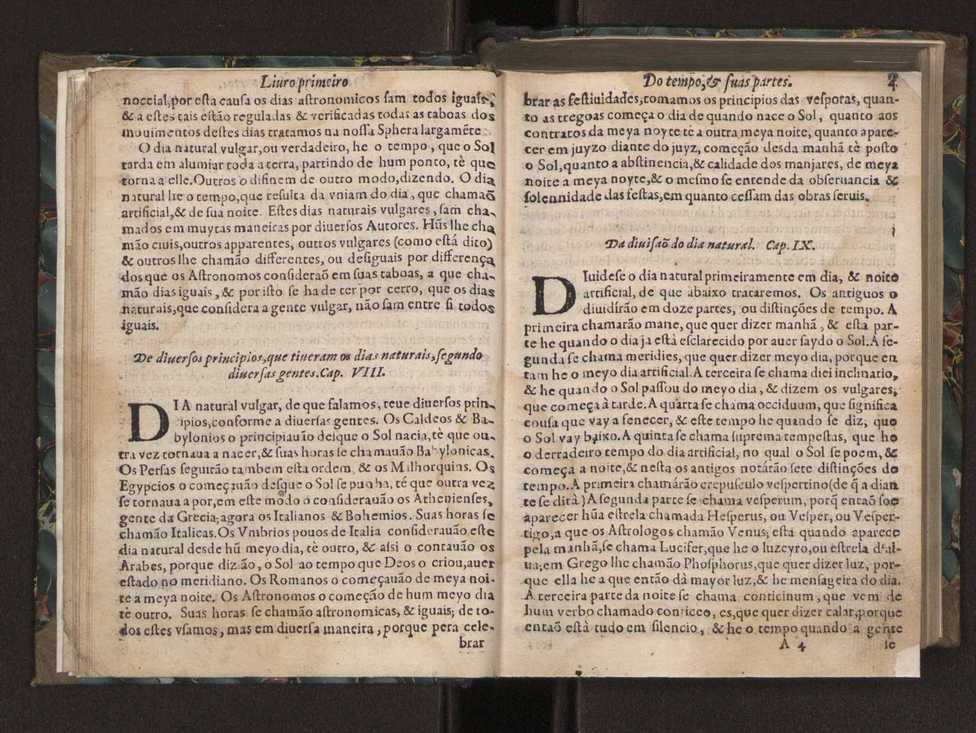 Liuro primeiro
noccial, por esta causa os dias astronomicos sam todos iguais,
& a estes tais estão reguladas & verificadas todas as taboas dos
mouimentos destes dias tratamos na nossa Sphera largamẽte.
O dia natural vulgar, ou verdadeiro, he o tempo, que o Sol
tarda em alumiar toda a terra, partindo de hum ponto, tè que
torna a elle. Outros o difinem de outro modo, dizendo. O dia
natural he o tempo, que resulta da vniam do dia, que chamaõ
artificial, & de sua noite. Estes dias naturais vulgares, sam cha-
mados em muytas maneiras por diuersos Autores. Hũs lhe cha
mão ciuis, outros apparentes, outros vulgares (como está dito)
& outros lhe chamão differentes, ou desiguais por differença
dos que os Astronomos consideraõ em suas taboas, a que cha-
mão dias iguais, & por isto se ha de ter por certo, que os dias
naturais, que considera a gente vulgar, não sam entre si todos
iguais.
De diuersos principios, que tiueram os dias naturais, segundo
diuersas gentes. Cap. VIII.
DIA natural vulgar, de que falamos, teue diuersos prin-
cipios, conforme a diuersas gentes. Os Caldeos & Ba-
bylonios o principiauão desque o Sol nacia, tè que ou-
tra vez tornaua a nacer, & suas horas se chamauão Babylonicas.
Os Persas seguirão tambem esta ordem, & os Malhorquins. Os
Egypcios o começauão desque o Sol se punha, té que outra vez
se tornaua a por, em este modo o considerauão os Athenienses,
gente da Grecia, agora os Italianos & Bohemios. Suas horas se
chamão Italicas. Os Vmbrios pouos de Italia considerauão este
dia natural desde hũ meyo dia, tè outro, & assi o contauão os
Arabes, porque dizão, o Sol ao tempo que Deos o criou, auer
estado no meridiano. Os Romanos o começauão de meya noi-
te a meya noite. Os Astronomos o começão de hum meyo dia
tè outro. Suas horas se chamão astronomicas, & iguais; de to-
dos estes vsamos, mas em diuersa maneira, porque pera cele-
brar
Do tempo, & suas partes. 4
brar as festiuidades, tomamos os principios das vesporas, quan-
to as tregoas começa o dia de quando nace o Sol, quanto aos
contratos da meya noyte tè a outra meya noite, quanto apare-
cer em juyzo diante do juyz, começão desda manhã tè posto
o Sol, quanto a abstinencia, & calidade dos manjares, de meya
noite a meya noyte, & o mesmo se entende da obseruancia &
solennidade das festas, em quanto cessam das obras seruis.
Da diuisaõ do dia natural. Cap. IX.
DIuidese o dia natural primeiramente em dia, & noite
artificial, de que abaixo trataremos. Os antiguos o
diuidirão em doze partes, ou distinções de tempo. A
primeira chamarão mane, que quer dizer manhã, & esta par-
te he quando o dia ja está esclarecido por auer saydo o Sol. A se-
gunda se chama meridies, que quer dizer meyo dia, porque en
tam he o meyo dia artificial. A terceira se chama diei inclinatio,
& he quando o Sol passou do meyo dia, & dizem os vulgares,
que começa á tarde. A quarta se chama occiduum, que significa
cousa que vay a fenecer, & este tempo he quando se diz, que
o Sol vay baixo. A quinta se chama suprema tempestas, que he
o derradeiro tempo do dia artificial, no qual o Sol se poem, &
começa a noite, & nesta os antigos notárão sete distinções do
tempo. A primeira chamárão crepusculo vespertino (de q̃ a dian
te se dirà) A segunda parte se chama vesperum, porq̃ entaõ soe
aparecer hũa estrela chamada Hesperus, ou Vesper, ou Vesper-
tigo, a que os Astrologos chamão Venus, esta quando aparece
pela manhã, se chama Lucifer, que he o luzeyro, ou estrela d'al-
ua; em Grego lhe chamão Phosphorus, que quer dizer luz, por-
que ella he a que então dá mayor luz, & he mensageira do dia.
A terceira parte da noite se chama conticinum, que vem de
hum verbo chamado conticeo, es, que quer dizer calar, porque
entaõ está tudo em silencio, & he o tempo quando a gente
A 4 se